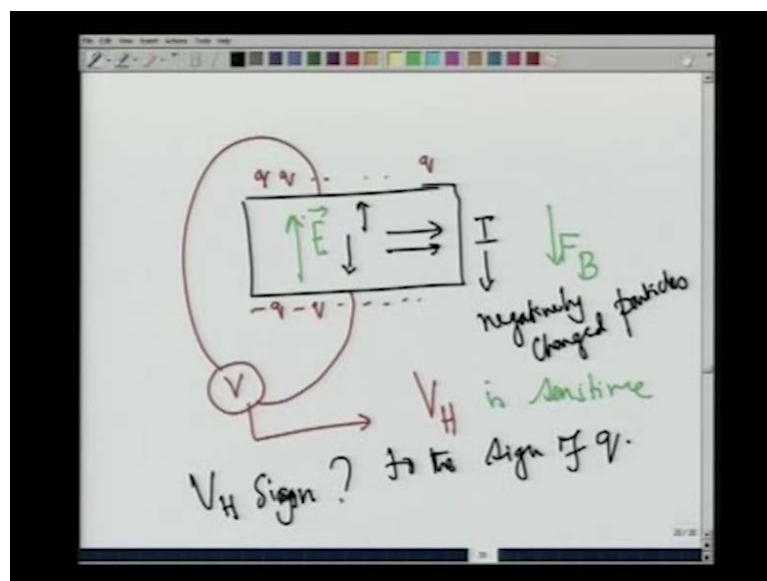 File Edit View Insert Actions Tools Help
q q - . . . . q
E I
F_B
- q - q - - - - -
negatively
charged particles
V
V_H is sensitive
V_H Sign? to the sign of q.